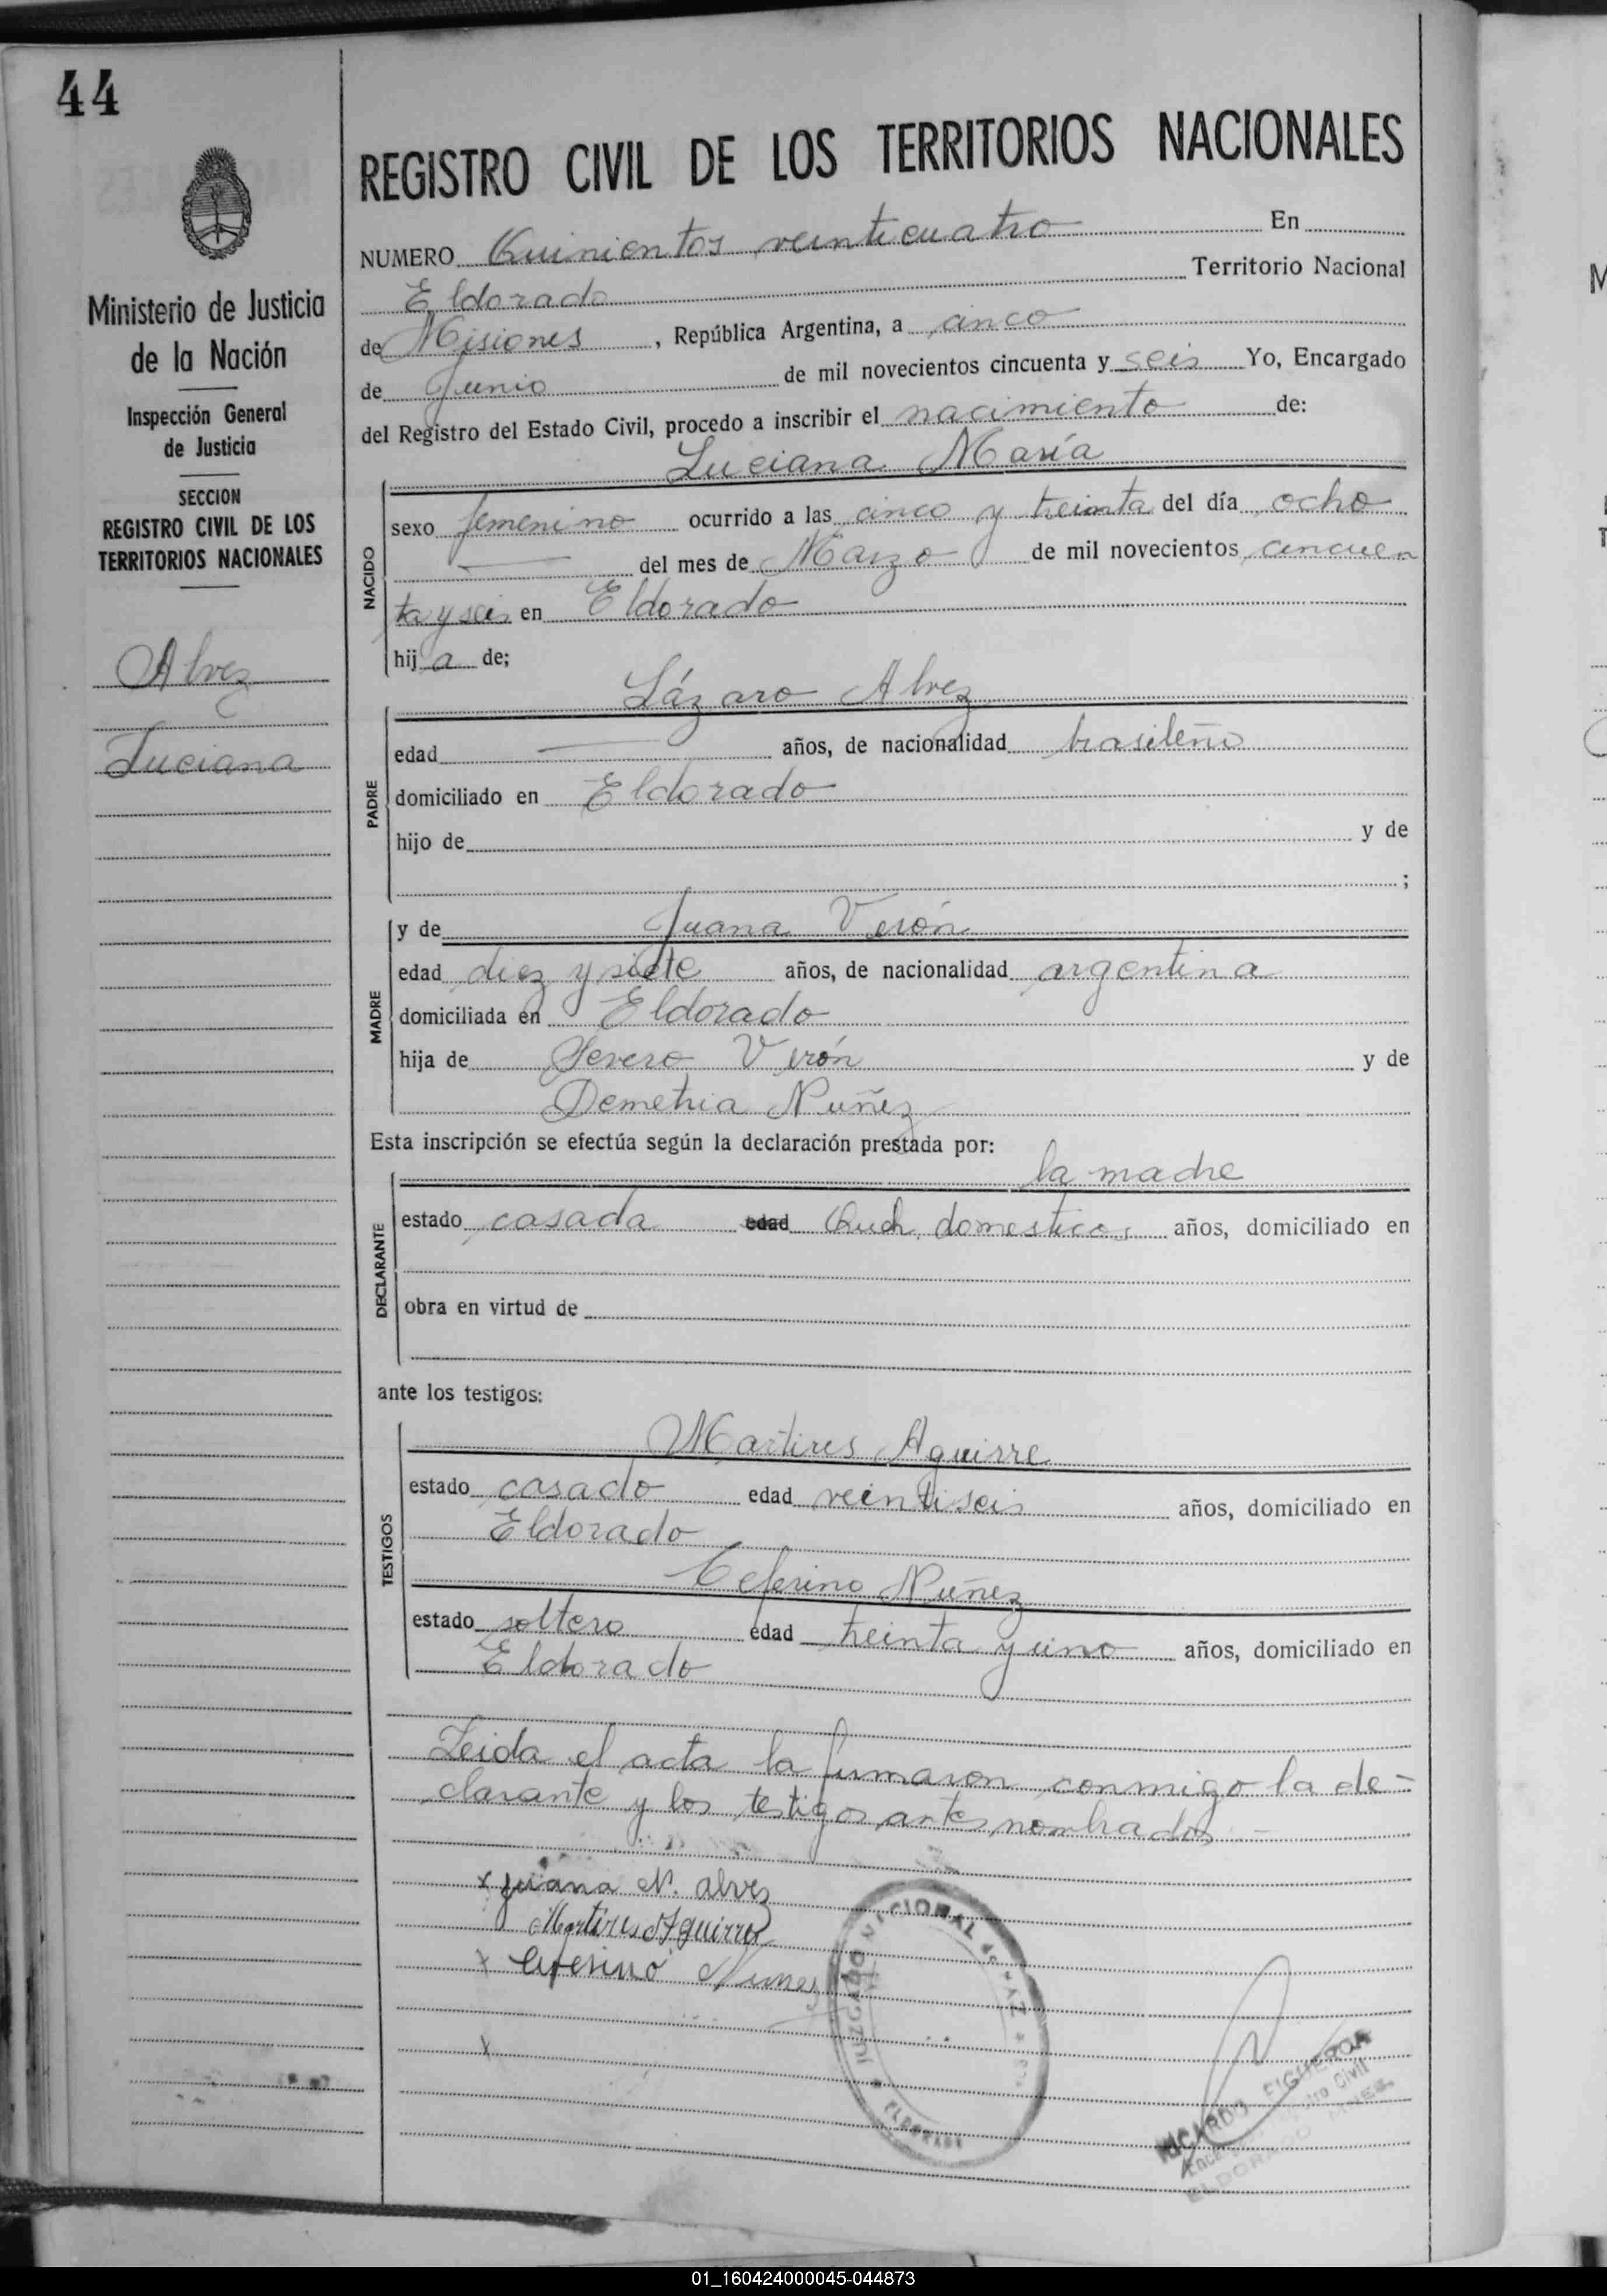 44
REGISTRO CIVIL DE LOS TERRITORIOS NACIONALES
Ministerio de Justicia
de la Nación
Inspección General
de Justicia
SECCION
REGISTRO CIVIL DE LOS
TERRITORIOS NACIONALES
Alvez
Luciana
NUMERO Quinientos veinticuatro En
Eldorado Territorio Nacional
de Misiones, República Argentina, a cinco
de Junio de mil novecientos cincuenta y seis Yo, Encargado
del Registro del Estado Civil, procedo a inscribir el nacimiento de:
Luciana María
NACIDO
sexo femenino ocurrido a las cinco y treinta del día ocho
del mes de Marzo de mil novecientos cincuen
ta y seis en Eldorado
hij a de;
Lázaro Alvez
PADRE
edad años, de nacionalidad brasileño
domiciliado en Eldorado
hijo de y de
;
MADRE
y de Juana Verón
edad diez y siete años, de nacionalidad argentina
domiciliada en Eldorado
hija de Severo Verón y de
Demetria Nuñez
Esta inscripción se efectúa según la declaración prestada por:
la madre
DECLARANTE
estado casada edad Queh. domesticos años, domiciliado en
obra en virtud de
ante los testigos:
TESTIGOS
Martires Aguirre
estado casado edad veintiseis años, domiciliado en
Eldorado
Ceferino Nuñez
estado soltero edad treinta y uno años, domiciliado en
Eldorado
Leida el acta la firmaron conmigo la de-
clarante y los testigos antes nombrados -
x Juana N. alvez
Martires Aguirre
x Ceferino Nunez
x
ELDORADO
RICARDO FIGUEROA
01_160424000045-044873